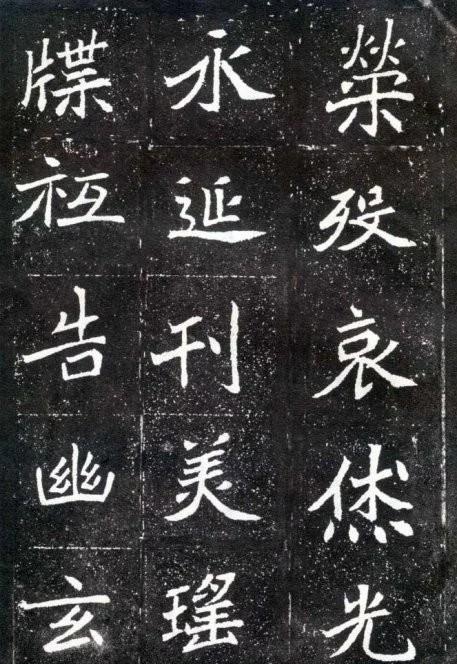 榮殁哀烋光
永延刊美瑤
牒祗告幽玄